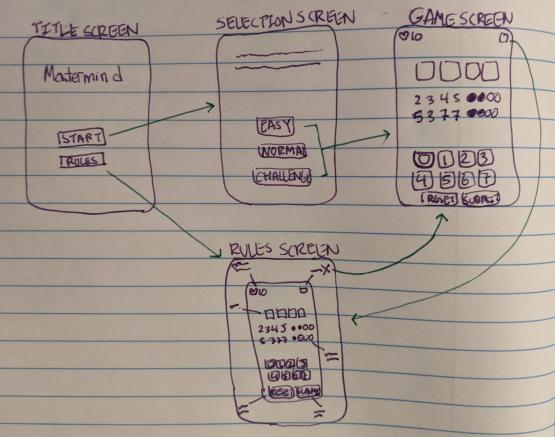 TITLE SCREEN
Mastermind
START
RULES
SELECTION SCREEN
EASY
NORMAL
CHALLENG
GAME SCREEN
10
2 3 4 5
5 3 7 7
0 1 2 3
4 5 6 7
RESET SUBMIT
RULES SCREEN
X
10
2 3 4 5
5 3 7 7
0 1 2 3
4 5 6 7
RESET SUBMIT